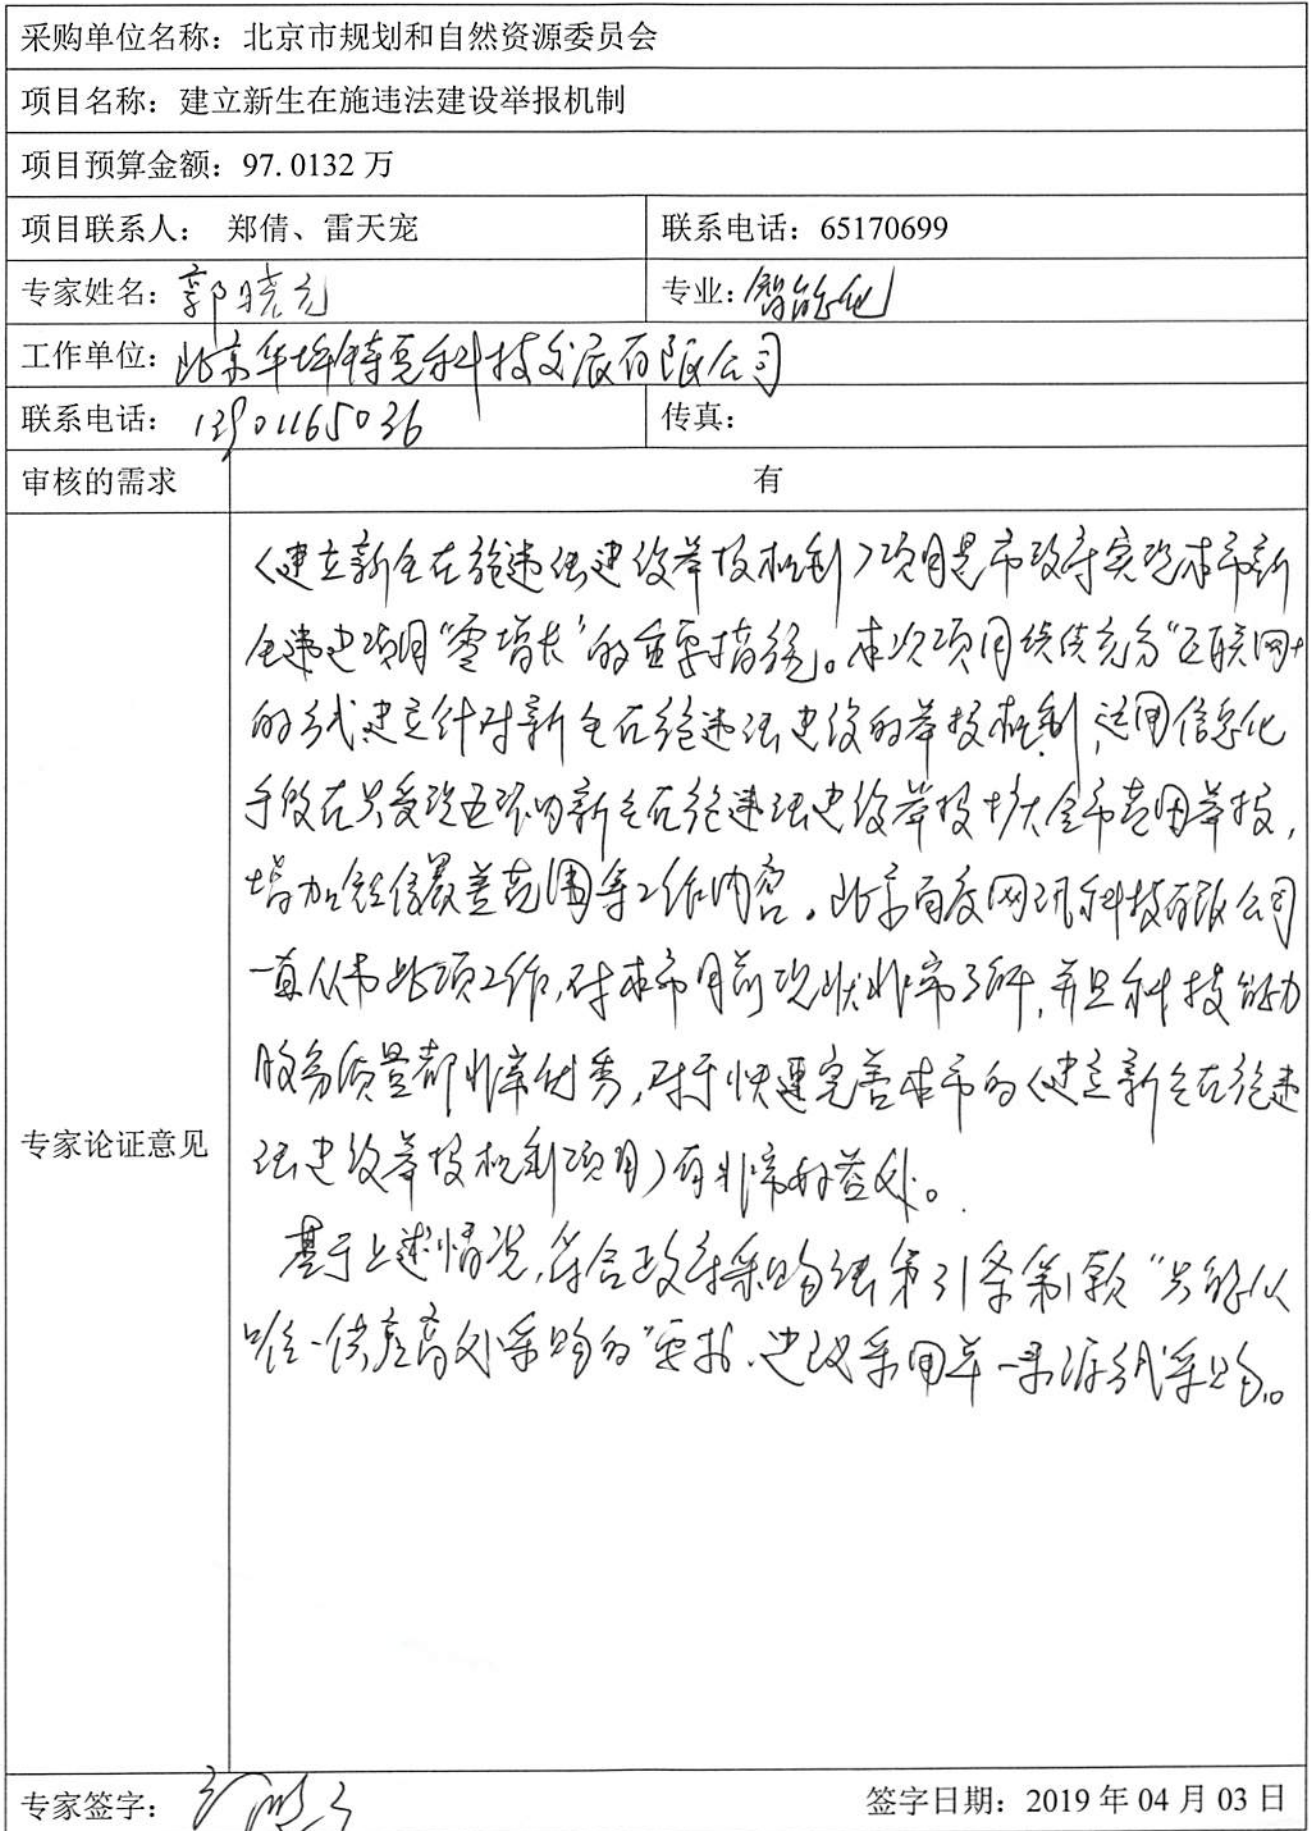 采购单位名称：北京市规划和自然资源委员会
项目名称：建立新生在施违法建设举报机制
项目预算金额：97.0132 万
项目联系人： 郑倩、雷天宠 联系电话：65170699
专家姓名：郭晓光 专业：智能化
工作单位：北京华埠特克科技发展有限公司
联系电话：13901165036 传真：
审核的需求 有
专家论证意见
《建立新生在施违法建设举报机制》项目是市政府实现本市新
生违建项目“零增长”的重要措施。本次项目继续充分“互联网+
的方式建立针对新生在施违法建设的举报机制，运用信息化
手段在只受理五环内新生在施违法建设举报扩大全市范围举报，
增加短信覆盖范围等工作内容。北京百度网讯科技有限公司
一直从事此项工作，对本市目前现状非常了解，并且科技能力
服务质量都非常优秀，对于快速完善本市的《建立新生在施违
法建设举报机制项目》有非常好益处。
基于上述情况，符合政府采购法第31条第1款“只能从
唯一供应商处采购的”要求、建议采用单一来源方式采购。
专家签字： 签字日期：2019 年 04 月 03 日